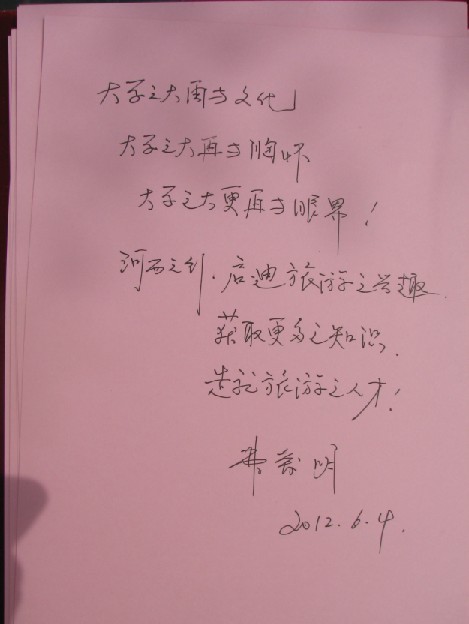 大学之大因于文化
大学之大再于胸怀
大学之大更再于眼界！
河西之行.启迪旅游之兴趣
获取更多之知识.
造就旅游之人才！
明
2012.6.4.